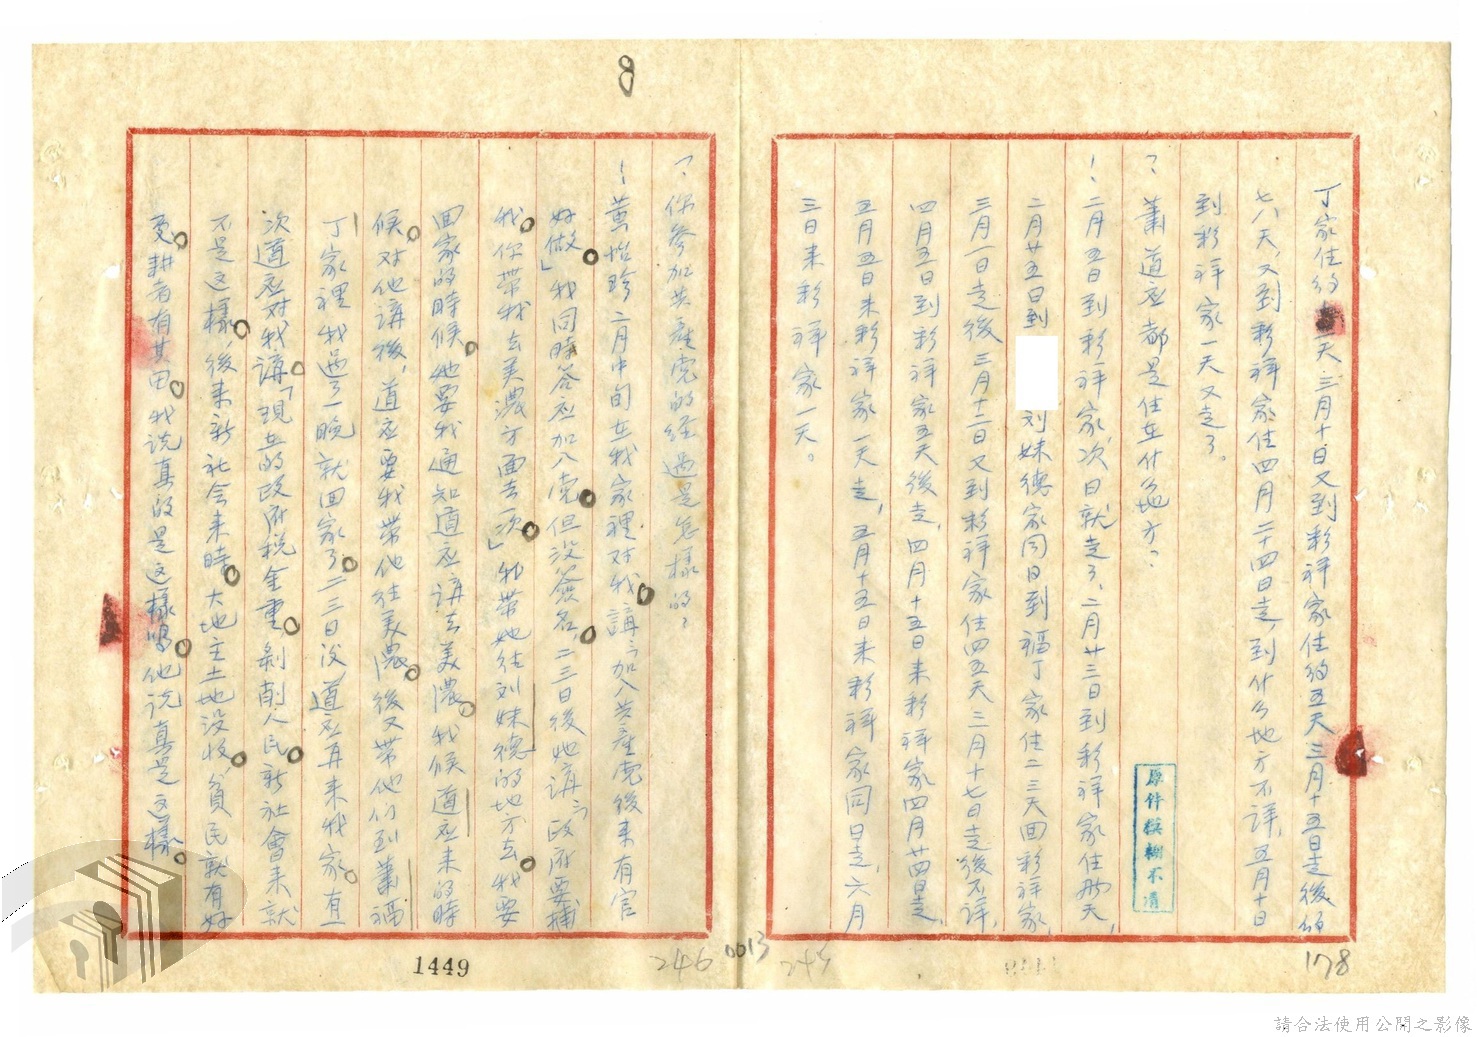 丁家住約一天、三月十日又到彩祥家住約五天三月十五日走後約
七八天、又到彩祥家住四月二十四日走、到什么地方不詳、五月十日
到彩祥家一天又走了。
？蕭道应都是住在什么地方？
！二月五日到彩祥家、次日就走了、二月廿三日到彩祥家住兩天、
二月廿五日到 刘妹德家同日到福丁家住二三天回彩祥家、
三月一日走後三月十二日又到彩祥家住四五天三月十七日走後不詳、
四月五日到彩祥家五天後走、四月十五日来彩祥家四月廿四日走、
五月五日来彩祥家一天走、五月十五日来彩祥家同日走、六月
三日来彩祥家一天。
原件模糊不清
178
245
0013
8
？你参加共產党的經過是怎樣的？
！黃怡珍二月中旬在我家裡对我講「加入共產党後来有官
好做」我同時答应加入党但没簽名、二三日後她講「政府要捕
我你带我去美濃方面去一次」我带她往刘妹德的地方去我要
回家的時候她要我通知道应講去美濃、我候道应来的時
候对他講後、道应要我带他往美濃後又带他们到蕭福
丁家裡我過了一晚就回家了二三日後道应再来我家有一
次道应对我講「現在的政府税金重、剝削人民新社會来就
不是这樣、後来新社会来時大地主土地没收、貧民就有好
耕者有其田、我说真的是这樣嗎、他说真是这樣
1449
246
請合法使用公開之影像